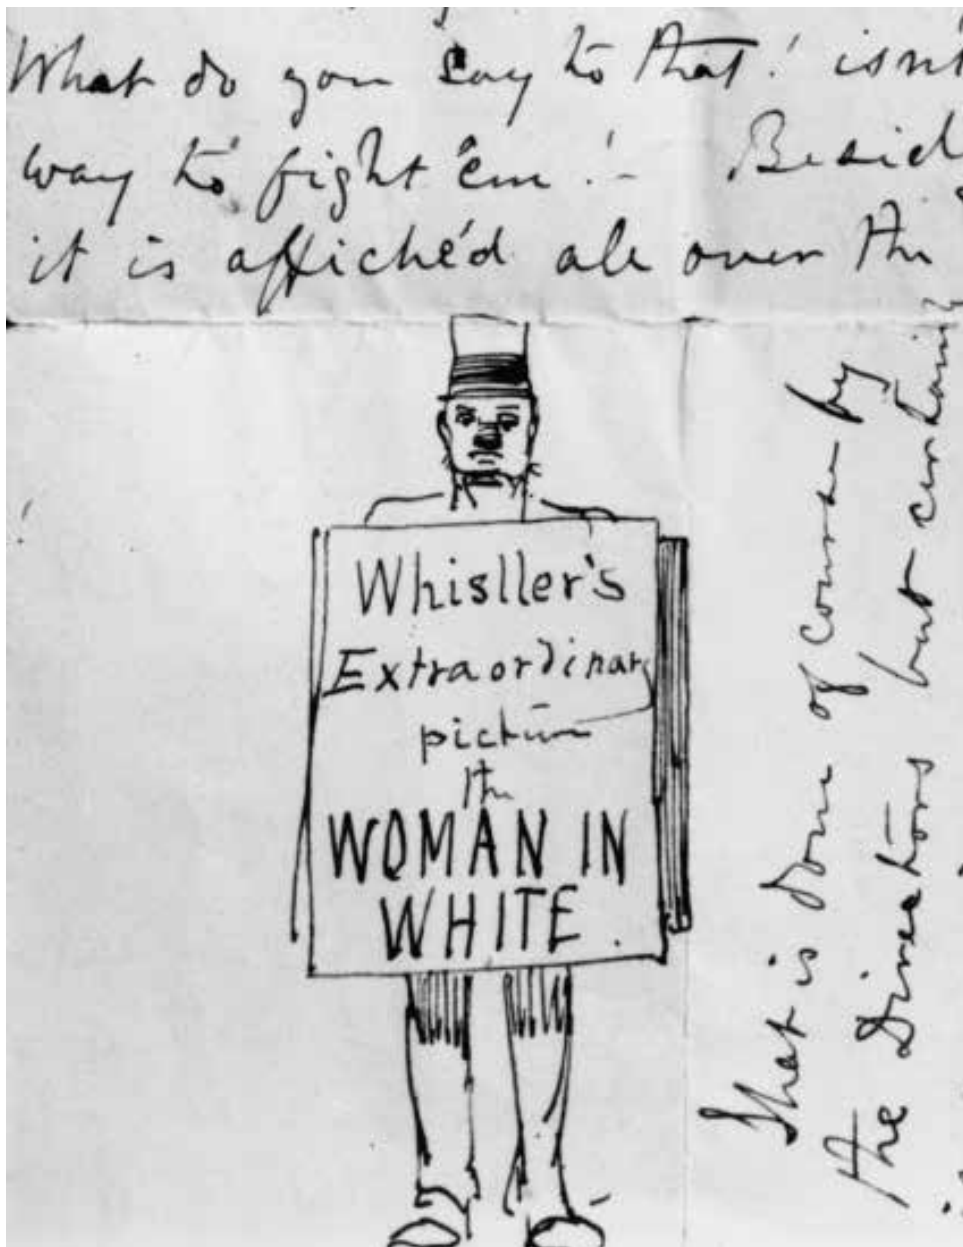 What do you say to that! isn't
way to fight 'em!- Besid
it is affiche'd all over the
Whisller's
Extraordinary
picture
the
WOMAN IN
WHITE.
That is done of course by
the Directors but certainly